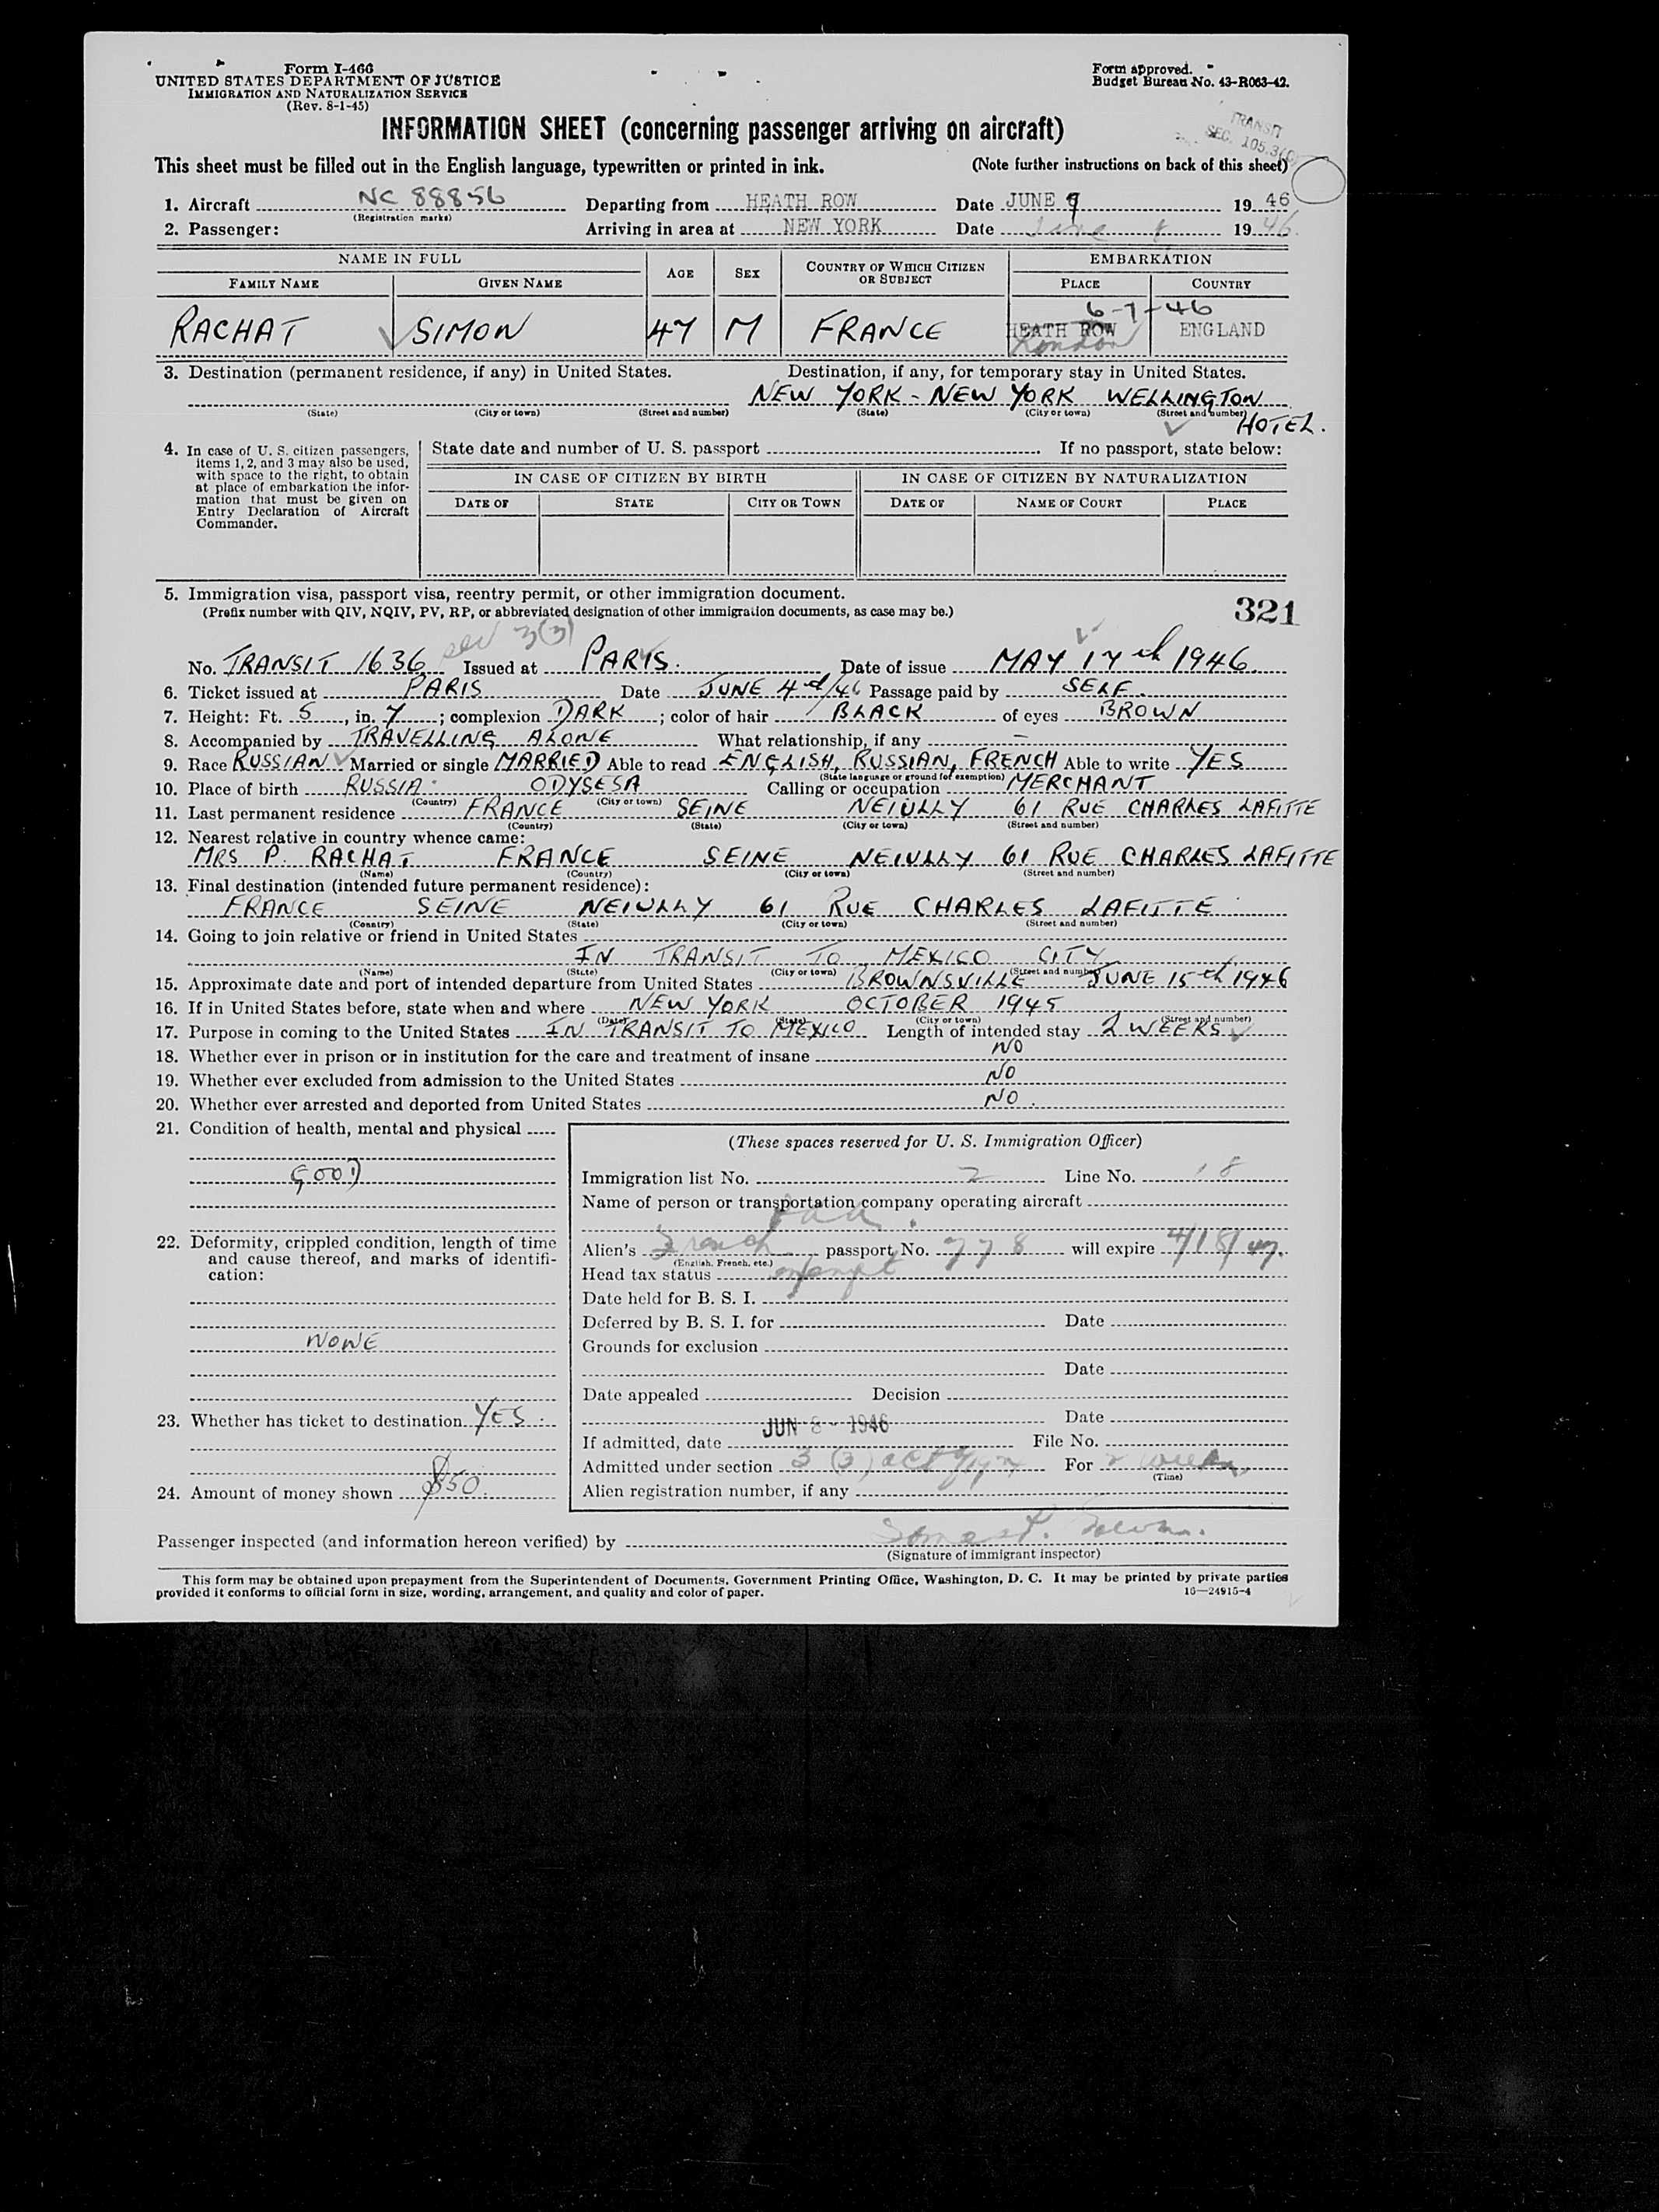 Form I-466
UNITED STATES DEPARTMENT OF JUSTICE
IMMIGRATION AND NATURALIZATION SERVICE
(Rev. 8-1-45)
Form approved.
Budget Bureau No. 43-R063-42.
INFORMATION SHEET (concerning passenger arriving on aircraft)
TRANSIT
SEC. 105.3(C)
This sheet must be filled out in the English language, typewritten or printed in ink. (Note further instructions on back of this sheet)
1. Aircraft NC 88856 Departing from HEATH ROW Date JUNE 1946
(Registration marks)
2. Passenger: Arriving in area at NEW YORK Date June 8 1946.
NAME IN FULL AGE SEX COUNTRY OF WHICH CITIZEN OR SUBJECT EMBARKATION
FAMILY NAME GIVEN NAME PLACE COUNTRY
6-7-46
RACHAT SIMON 47 M FRANCE HEATH ROW ENGLAND
London
3. Destination (permanent residence, if any) in United States. Destination, if any, for temporary stay in United States.
NEW YORK - NEW YORK WELLINGTON
(State) (City or town) (Street and number) (State) (City or town) (Street and number)
HOTEL.
4. In case of U. S. citizen passengers, items 1, 2, and 3 may also be used, with space to the right, to obtain at place of embarkation the information that must be given on Entry Declaration of Aircraft Commander.
State date and number of U. S. passport If no passport, state below:
IN CASE OF CITIZEN BY BIRTH IN CASE OF CITIZEN BY NATURALIZATION
DATE OF STATE CITY OR TOWN DATE OF NAME OF COURT PLACE
5. Immigration visa, passport visa, reentry permit, or other immigration document.
(Prefix number with QIV, NQIV, PV, RP, or abbreviated designation of other immigration documents, as case may be.) 321
3(3)
No. TRANSIT 1636 Issued at PARIS. Date of issue MAY 17th 1946.
6. Ticket issued at PARIS Date JUNE 4d/46 Passage paid by SELF.
7. Height: Ft. 5, in. 7; complexion DARK; color of hair BLACK of eyes BROWN
8. Accompanied by TRAVELLING ALONE What relationship, if any –
9. Race RUSSIAN Married or single MARRIED Able to read ENGLISH, RUSSIAN, FRENCH Able to write YES
(State language or ground for exemption)
10. Place of birth RUSSIA. ODYSESA Calling or occupation MERCHANT
(Country) (City or town)
11. Last permanent residence FRANCE SEINE NEIULLY 61 RUE CHARLES LAFITTE
(Country) (State) (City or town) (Street and number)
12. Nearest relative in country whence came:
MRS P. RACHAT FRANCE SEINE NEIULLY 61 RUE CHARLES LAFITTE
(Name) (Country) (City or town) (Street and number)
13. Final destination (intended future permanent residence):
FRANCE SEINE NEIULLY 61 RUE CHARLES LAFITTE
(Country) (State) (City or town) (Street and number)
14. Going to join relative or friend in United States
IN TRANSIT TO MEXICO CITY
(Name) (State) (City or town) (Street and number)
15. Approximate date and port of intended departure from United States BROWNSVILLE JUNE 15th 1946
16. If in United States before, state when and where NEW YORK OCTOBER 1945
(Date) (State) (City or town) (Street and number)
17. Purpose in coming to the United States IN TRANSIT TO MEXICO Length of intended stay 2 WEEKS
18. Whether ever in prison or in institution for the care and treatment of insane NO
19. Whether ever excluded from admission to the United States NO
20. Whether ever arrested and deported from United States NO.
21. Condition of health, mental and physical
GOOD
22. Deformity, crippled condition, length of time and cause thereof, and marks of identification:
NONE
23. Whether has ticket to destination YES.
24. Amount of money shown $50.
(These spaces reserved for U. S. Immigration Officer)
Immigration list No. 2 Line No. 18
Name of person or transportation company operating aircraft
Paa.
Alien's French passport No. 778 will expire 4/18/47.
(English, French, etc.)
Head tax status exempt
Date held for B. S. I.
Deferred by B. S. I. for Date
Grounds for exclusion
Date
Date appealed Decision
Date
If admitted, date JUN 8 - 1946 File No.
Admitted under section 3 (3) act For 2 weeks.
(Time)
Alien registration number, if any
Passenger inspected (and information hereon verified) by
(Signature of immigrant inspector)
This form may be obtained upon prepayment from the Superintendent of Documents, Government Printing Office, Washington, D. C. It may be printed by private parties
provided it conforms to official form in size, wording, arrangement, and quality and color of paper. 16—24915-4